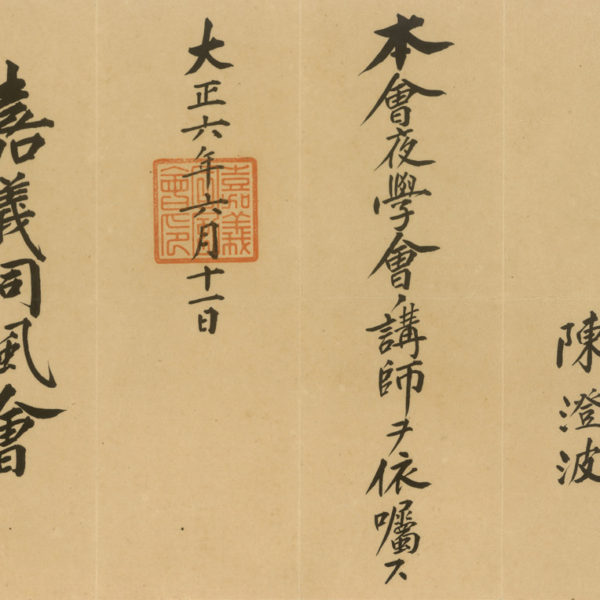 陳澄波
本會夜學會ノ講師ヲ依囑ス
大正六年六月十一日
嘉義同風會